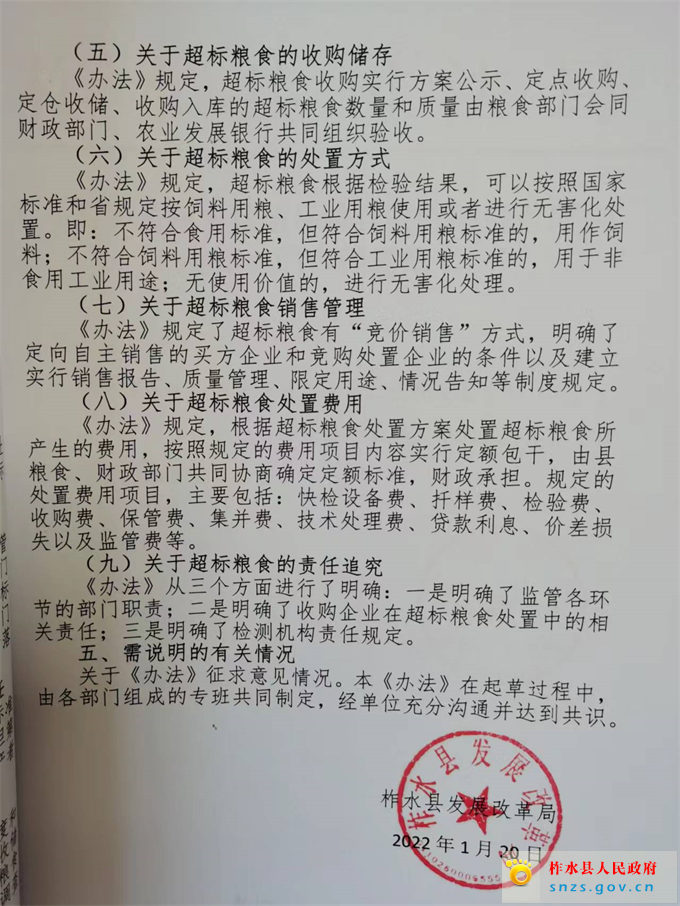 （五）关于超标粮食的收购储存
《办法》规定，超标粮食收购实行方案公示、定点收购、
定仓收储、收购入库的超标粮食数量和质量由粮食部门会同
财政部门、农业发展银行共同组织验收。
（六）关于超标粮食的处置方式
《办法》规定，超标粮食根据检验结果，可以按照国家
标准和省规定按饲料用粮、工业用粮使用或者进行无害化处
置。即：不符合食用标准，但符合饲料用粮标准的，用作饲
料；不符合饲料用粮标准，但符合工业用粮标准的，用于非
食用工业用途；无使用价值的，进行无害化处理。
（七）关于超标粮食销售管理
《办法》规定了超标粮食有“竞价销售”方式，明确了
定向自主销售的买方企业和竞购处置企业的条件以及建立
实行销售报告、质量管理、限定用途、情况告知等制度规定。
（八）关于超标粮食处置费用
《办法》规定，根据超标粮食处置方案处置超标粮食所
产生的费用，按照规定的费用项目内容实行定额包干，由县
粮食、财政部门共同协商确定定额标准，财政承担。规定的
处置费用项目，主要包括：快检设备费、扦样费、检验费、
收购费、保管费、集并费、技术处理费、贷款利息、价差损
失以及监管费等。
（九）关于超标粮食的责任追究
《办法》从三个方面进行了明确：一是明确了监管各环
节的部门职责；二是明确了收购企业在超标粮食处置中的相
关责任；三是明确了检测机构责任规定。
五、需说明的有关情况
关于《办法》征求意见情况。本《办法》在起草过程中，
由各部门组成的专班共同制定，经单位充分沟通并达到共识。
柞水县发展改革局
2022年1月20日
柞水县发展改革
柞水县人民政府
snzs.gov.cn